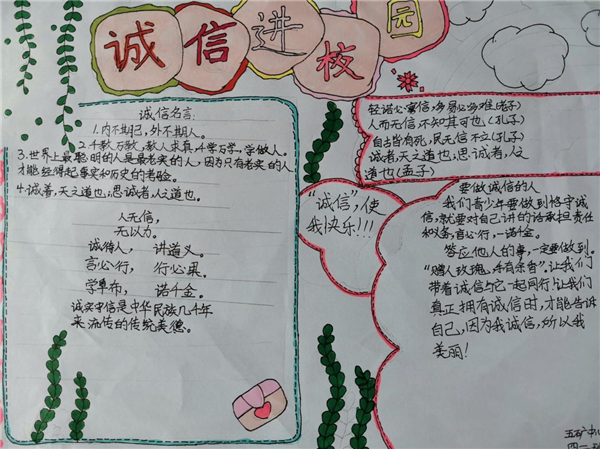 诚信进校园
诚信名言:
1.内不期己,外不期人。
2.千教万教,教人求真,千学万学,学做人。
3.世界上最聪明的人是最老实的人,因为只有老实的人
才能经得起事实和历史的考验。
4.诚者,天之道也;思诚者,人之道也。
人无信,
无以力。
诚待人, 讲道义。
言必行, 行必果。
学季布, 诺千金。
诚实守信是中华民族几千年
来流传的传统美德。
轻诺必寡信,多易必多难(老子)
人而无信,不知其可也(孔子)
自古皆有死,民无信不立(孔子)
诚者,天之道也;思诚者,人之
道也(孟子)
“诚信”,使
我快乐!!!
要做诚信的人
我们青少年要做到恪守诚
信,就要对自己讲的话承担责任
和义务,言必行,一诺千金。
答应他人的事,一定要做到。
“赠人玫瑰,手有余香”。让我们
带着诚信与它一起同行!让我们
真正拥有诚信时,才能告诉
自己,因为我诚信,所以我
美丽!
五矿中
四一班